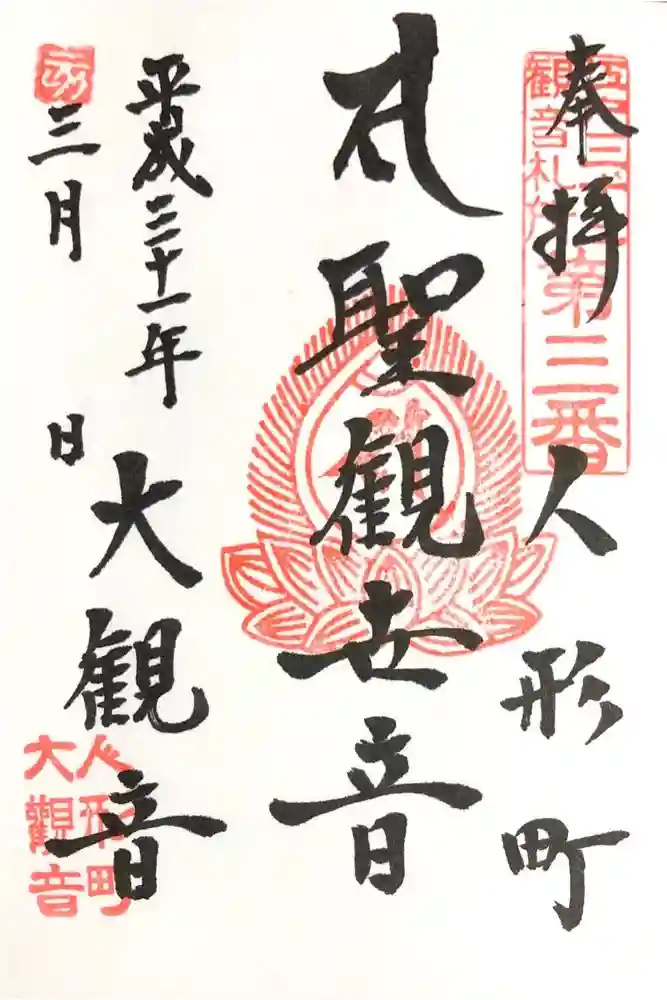 奉拝
観音札所
第三番
人形町
聖観世音
平成三十一年
三月 日
大観音
人形町
大觀音